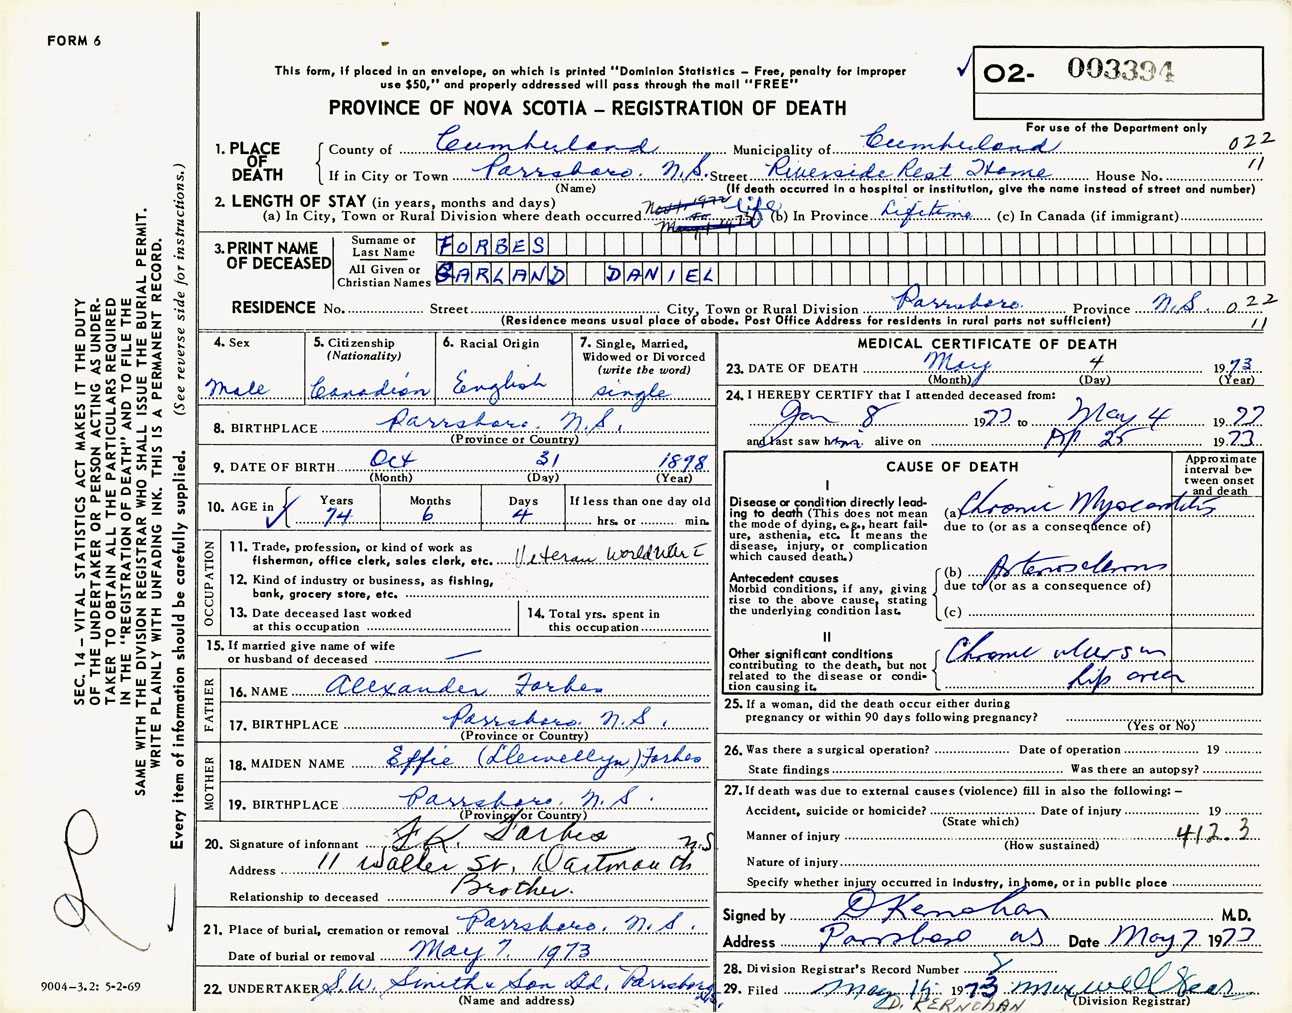 FORM 6
This form, if placed in an envelope, on which is printed "Dominion Statistics – Free, penalty for improper
use $50," and properly addressed will pass through the mail "FREE"
PROVINCE OF NOVA SCOTIA – REGISTRATION OF DEATH
02- 003394
For use of the Department only
1. PLACE OF DEATH
County of Cumberland Municipality of Cumberland 022
If in City or Town Parrsboro. N.S. Street Riverside Rest Home House No. 11
(Name) (If death occurred in a hospital or institution, give the name instead of street and number)
2. LENGTH OF STAY (in years, months and days)
(a) In City, Town or Rural Division where death occurred life (b) In Province Lifetime (c) In Canada (if immigrant)
3. PRINT NAME OF DECEASED
Surname or Last Name FORBES
All Given or Christian Names GARLAND DANIEL
RESIDENCE No. Street City, Town or Rural Division Parrsboro. Province N.S. 022
(Residence means usual place of abode. Post Office Address for residents in rural parts not sufficient) 11
4. Sex
Male
5. Citizenship
(Nationality)
Canadian
6. Racial Origin
English
7. Single, Married,
Widowed or Divorced
(write the word)
single
8. BIRTHPLACE Parrsboro. N.S.
(Province or Country)
9. DATE OF BIRTH Oct 31 1898
(Month) (Day) (Year)
10. AGE in Years Months Days If less than one day old
74 6 4 hrs. or min.
OCCUPATION
11. Trade, profession, or kind of work as
fisherman, office clerk, sales clerk, etc. Veteran World War I
12. Kind of industry or business, as fishing,
bank, grocery store, etc.
13. Date deceased last worked
at this occupation
14. Total yrs. spent in
this occupation
15. If married give name of wife
or husband of deceased —
FATHER
16. NAME Alexander Forbes
17. BIRTHPLACE Parrsboro. N.S.
(Province or Country)
MOTHER
18. MAIDEN NAME Effie (Llewellyn) Forbes
19. BIRTHPLACE Parrsboro. N.S.
(Province or Country)
20. Signature of informant F.K. Forbes
Address 11 Walker St. Dartmouth N.S
Relationship to deceased Brother.
21. Place of burial, cremation or removal Parrsboro, N.S.
Date of burial or removal May 7, 1973
22. UNDERTAKER S.W. Smith & Son Ltd. Parrsboro N.S.
(Name and address)
MEDICAL CERTIFICATE OF DEATH
23. DATE OF DEATH May 4 1973
(Month) (Day) (Year)
24. I HEREBY CERTIFY that I attended deceased from:
Jan 8 1973 to May 4 1973
and last saw him alive on Ap 25 1973
CAUSE OF DEATH
Approximate
interval be-
tween onset
and death
I
Disease or condition directly lead-
ing to death (This does not mean
the mode of dying, e.g., heart fail-
ure, asthenia, etc. It means the
disease, injury, or complication
which caused death.)
(a) Chronic Myocarditis
due to (or as a consequence of)
Antecedent causes
Morbid conditions, if any, giving
rise to the above cause, stating
the underlying condition last.
(b) Arteriosclerosis
due to (or as a consequence of)
(c)
II
Other significant conditions
contributing to the death, but not
related to the disease or condi-
tion causing it.
Chronic ulcers in
hip area
25. If a woman, did the death occur either during
pregnancy or within 90 days following pregnancy?
(Yes or No)
26. Was there a surgical operation? Date of operation 19
State findings Was there an autopsy?
27. If death was due to external causes (violence) fill in also the following: –
Accident, suicide or homicide? Date of injury 19
(State which)
Manner of injury 412.3
(How sustained)
Nature of injury
Specify whether injury occurred in industry, in home, or in public place
Signed by D Kernohan M.D.
Address Parrsboro NS Date May 7 1973
28. Division Registrar's Record Number 8
29. Filed May 15 1973 Maxwell
D. KERNOHAN (Division Registrar)
SEC. 14 – VITAL STATISTICS ACT MAKES IT THE DUTY
OF THE UNDERTAKER OR PERSON ACTING AS UNDER-
TAKER TO OBTAIN ALL THE PARTICULARS REQUIRED
IN THE "REGISTRATION OF DEATH" AND TO FILE THE
SAME WITH THE DIVISION REGISTRAR WHO SHALL ISSUE THE BURIAL PERMIT.
WRITE PLAINLY WITH UNFADING INK. THIS IS A PERMANENT RECORD.
Every item of information should be carefully supplied. (See reverse side for instructions.)
9004-3.2: 5-2-69